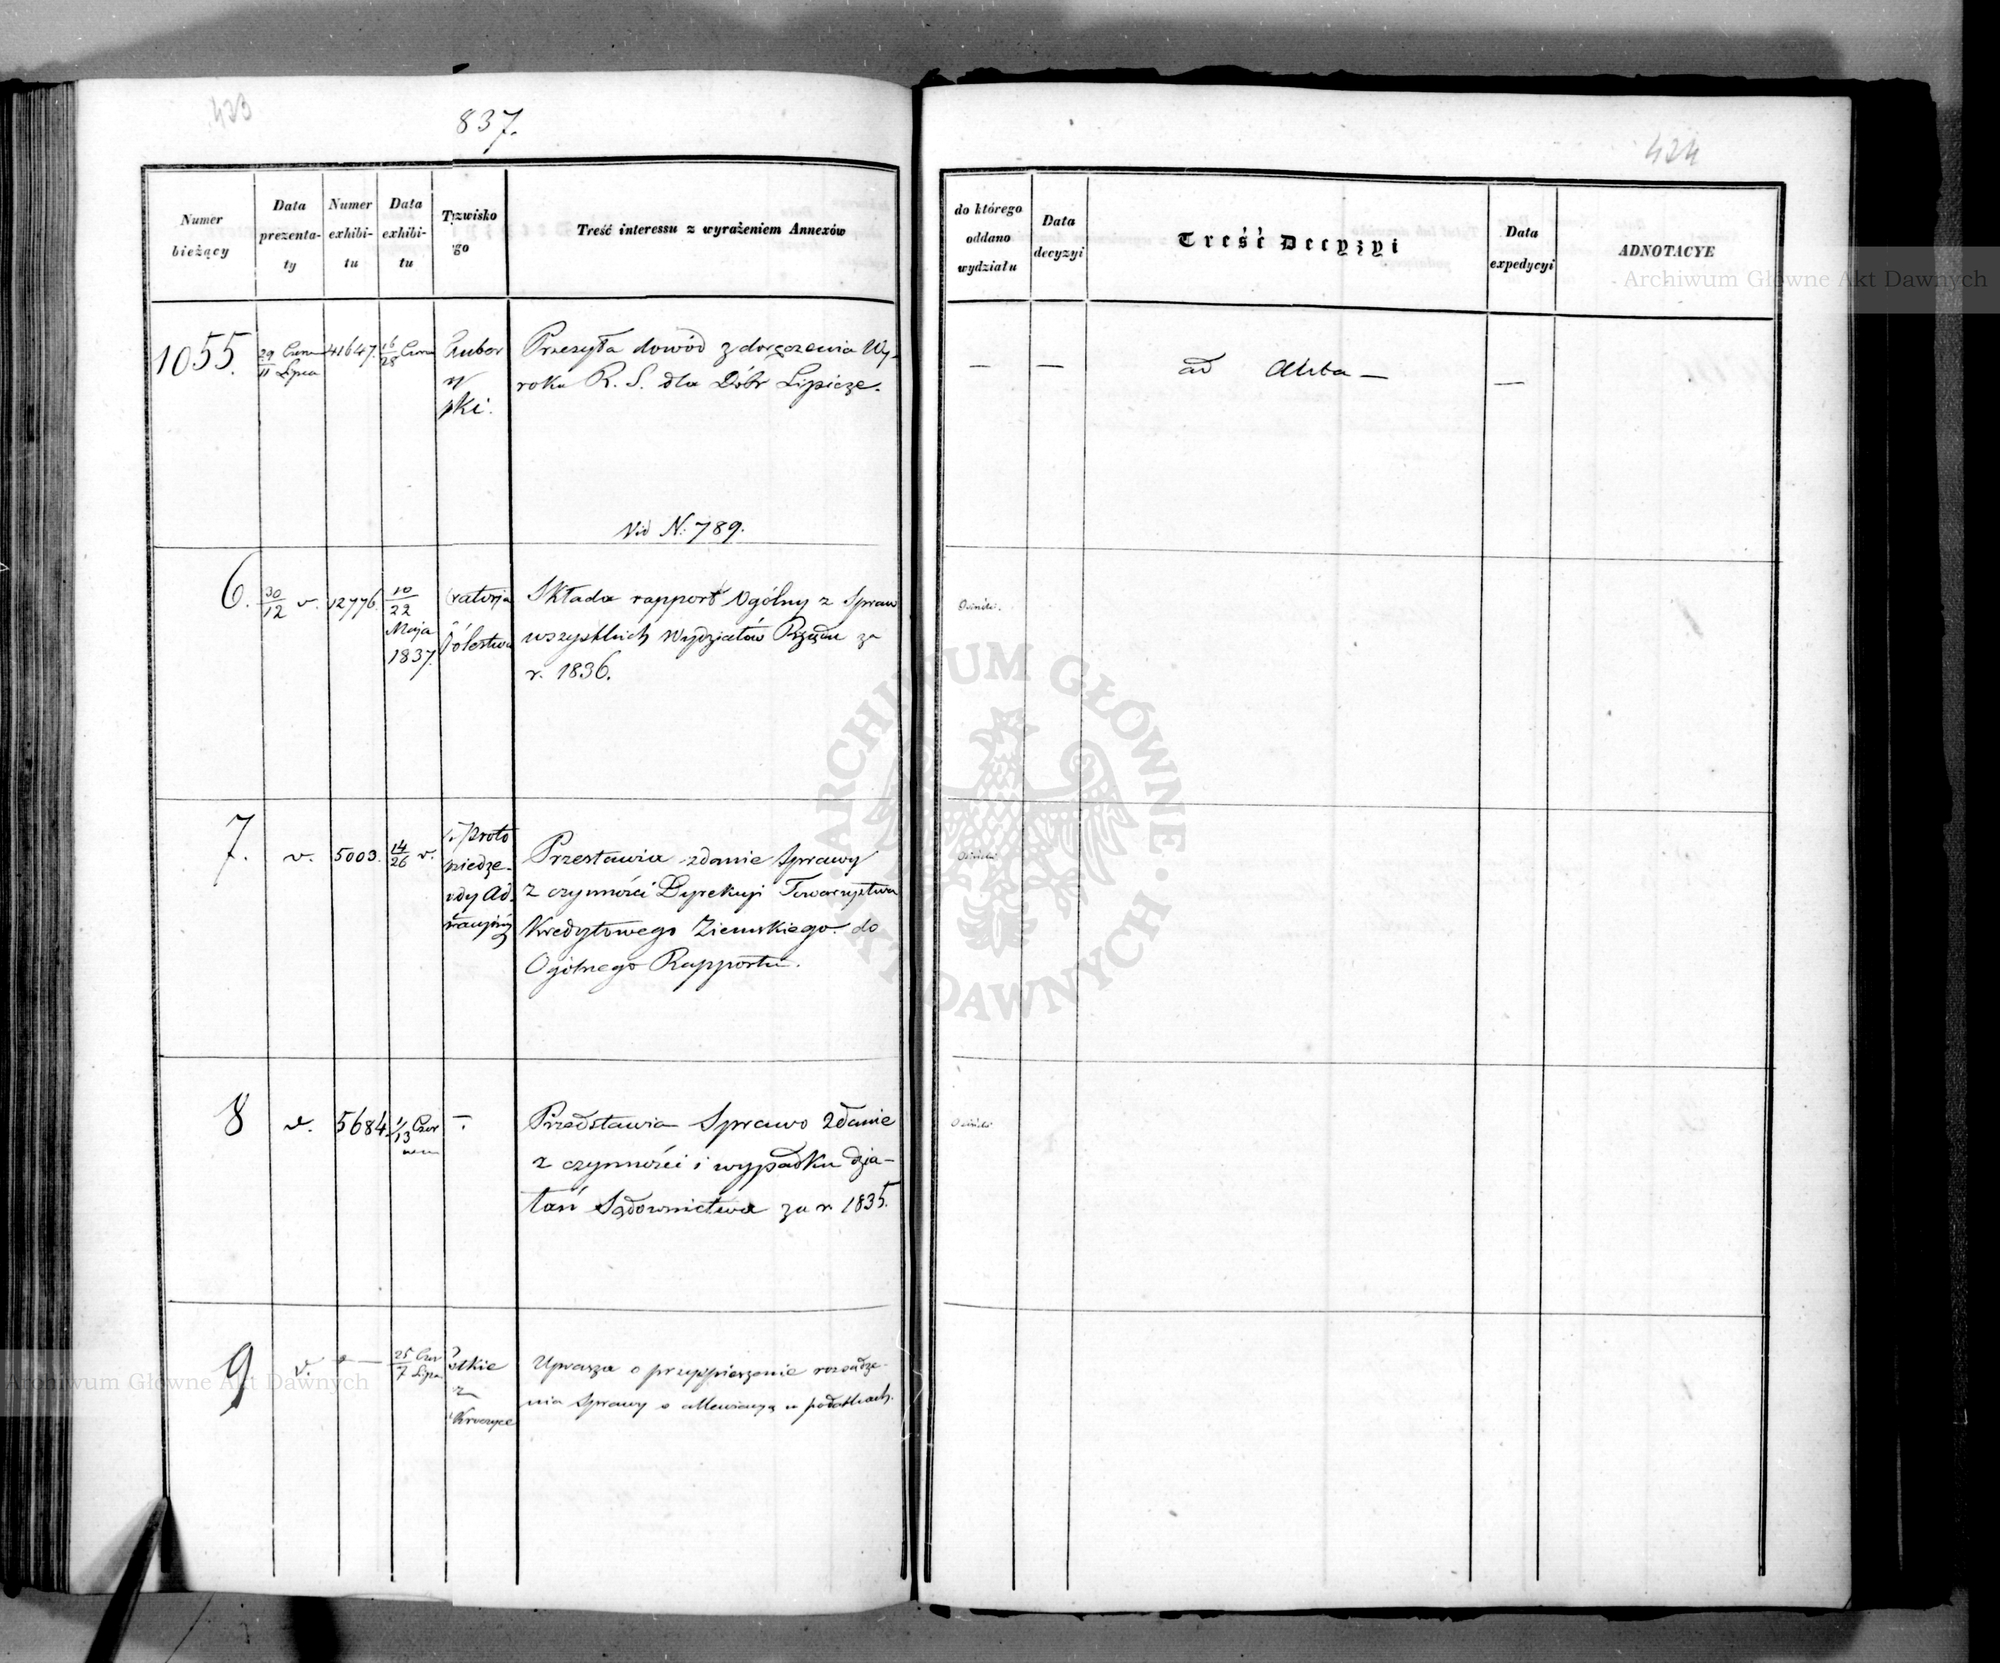 433
837.
424
Numer bieżący
Data prezentaty
Numer exhibitu
Data exhibitu
Treść interessu z wyrażeniem Annexów
do którego oddano wydziału
Data decyzyi
Treść Decyzyi
Data expedycyi
ADNOTACYE
1055.
29/11 Lipca
41647.
16/28
Przesyła dowód z doręczenia Wy-
roku R. S. dla Dóbr Lipicze.
Vid N: 789.
— — ad Akta — —
6.
30/12 v.
12776.
10/22
Maja
1837.
Składa rapport Ogólny z Spraw
wszystkich Wydziałów Rządu za
r. 1836.
7.
v.
5003.
14/26 v.
Przestawia zdanie Sprawy
z czynności Dyrekcyi Towarzystwa
Kredytowego Ziemskiego do
Ogólnego Rapportu.
8
v.
5684
1/13
Przedstawia Sprawo zdanie
z czynności i wypadku dzia-
łań Sądownictwa za r. 1835.
9
v.
—
25/7
Uprasza o przyspieszenie rozsądze-
nia Sprawy o w podatkach.
ARCHIWUM GŁÓWNE AKT DAWNYCH
Archiwum Główne Akt Dawnych
Archiwum Główne Akt Dawnych